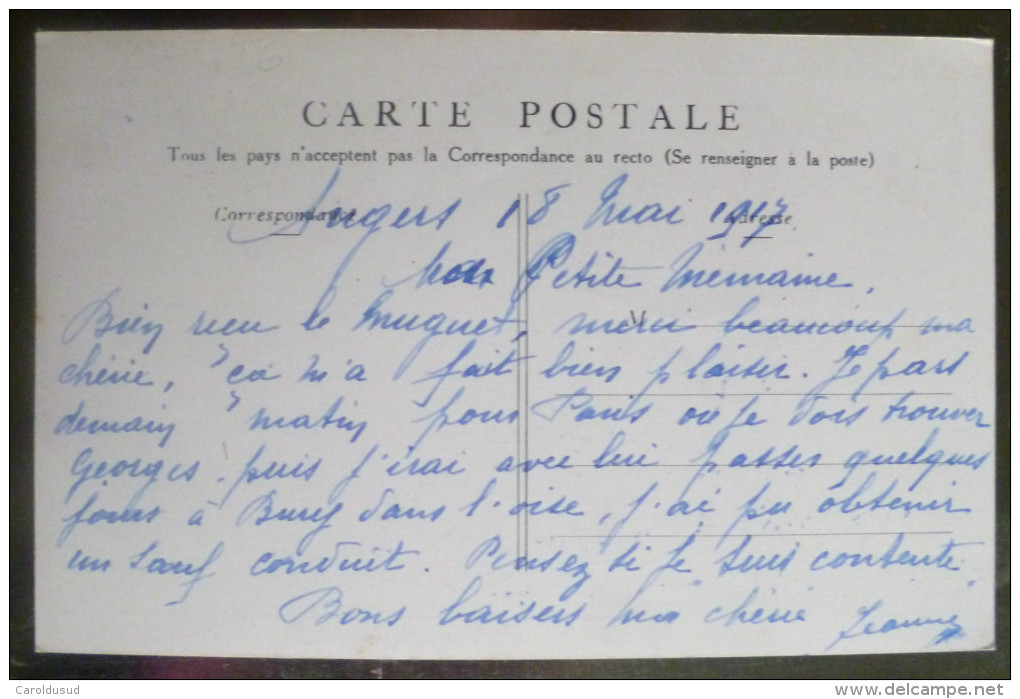 CARTE POSTALE
Tous les pays n'acceptent pas la Correspondance au recto (Se renseigner à la poste)
Correspondance Adresse
Angers 18 Mai 1917
Ma Petite Mémaine,
Bien reçu le muguet, merci beaucoup ma
chérie, ça m'a fait bien plaisir. Je pars
demain matin pour Paris où je dois trouver
Georges. puis j'irai avec lui passer quelques
jours à Bury dans l'oise, j'ai pu obtenir
un sauf conduit. Pensez si je suis contente.
Bons baisers ma chérie Jeanne
Caroldusud
delcampe.net